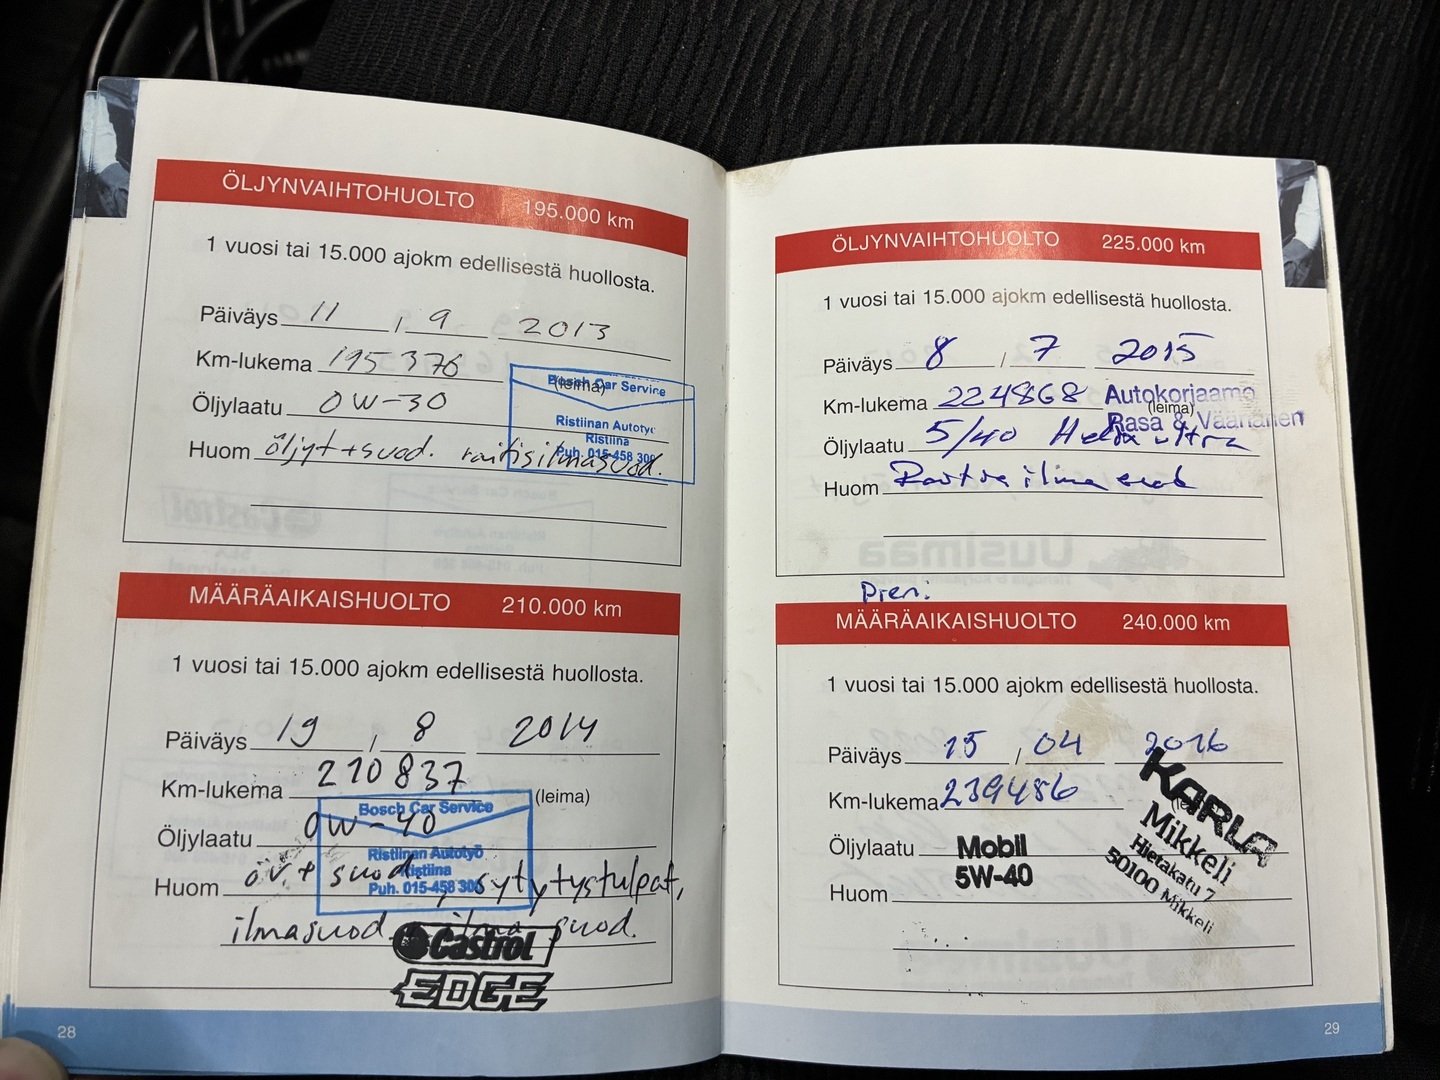 ÖLJYNVAIHTOHUOLTO 195.000 km
1 vuosi tai 15.000 ajokm edellisestä huollosta.
Päiväys 11 / 9 2013
Km-lukema 195376
(leima)
Bosch Car Service
Öljylaatu 0W-30
Ristiinan Autotyö
Ristiina
Puh. 015-458 300
Huom öljyt+suod. raitisilmasuod.
MÄÄRÄAIKAISHUOLTO 210.000 km
1 vuosi tai 15.000 ajokm edellisestä huollosta.
Päiväys 19 / 8 2014
Km-lukema 210837
(leima)
Bosch Car Service
Öljylaatu 0W-40
Ristiinan Autotyö
Ristiina
Puh. 015-458 300
Huom öv+ suod. sytytystulpat,
ilmasuod. suod.
Castrol
EDGE
28
ÖLJYNVAIHTOHUOLTO 225.000 km
1 vuosi tai 15.000 ajokm edellisestä huollosta.
Päiväys 8 / 7 2015
Km-lukema 224868
Autokorjaamo
(leima)
Rasa & Väänänen
Öljylaatu 5/40 Helix ultra
Huom Raitis ilma suod
MÄÄRÄAIKAISHUOLTO 240.000 km
1 vuosi tai 15.000 ajokm edellisestä huollosta.
Päiväys 15 / 04 2016
Km-lukema 239486
KARLA
Mikkeli
Hietakatu 7
50100 Mikkeli
Öljylaatu Mobil
5W-40
Huom
29